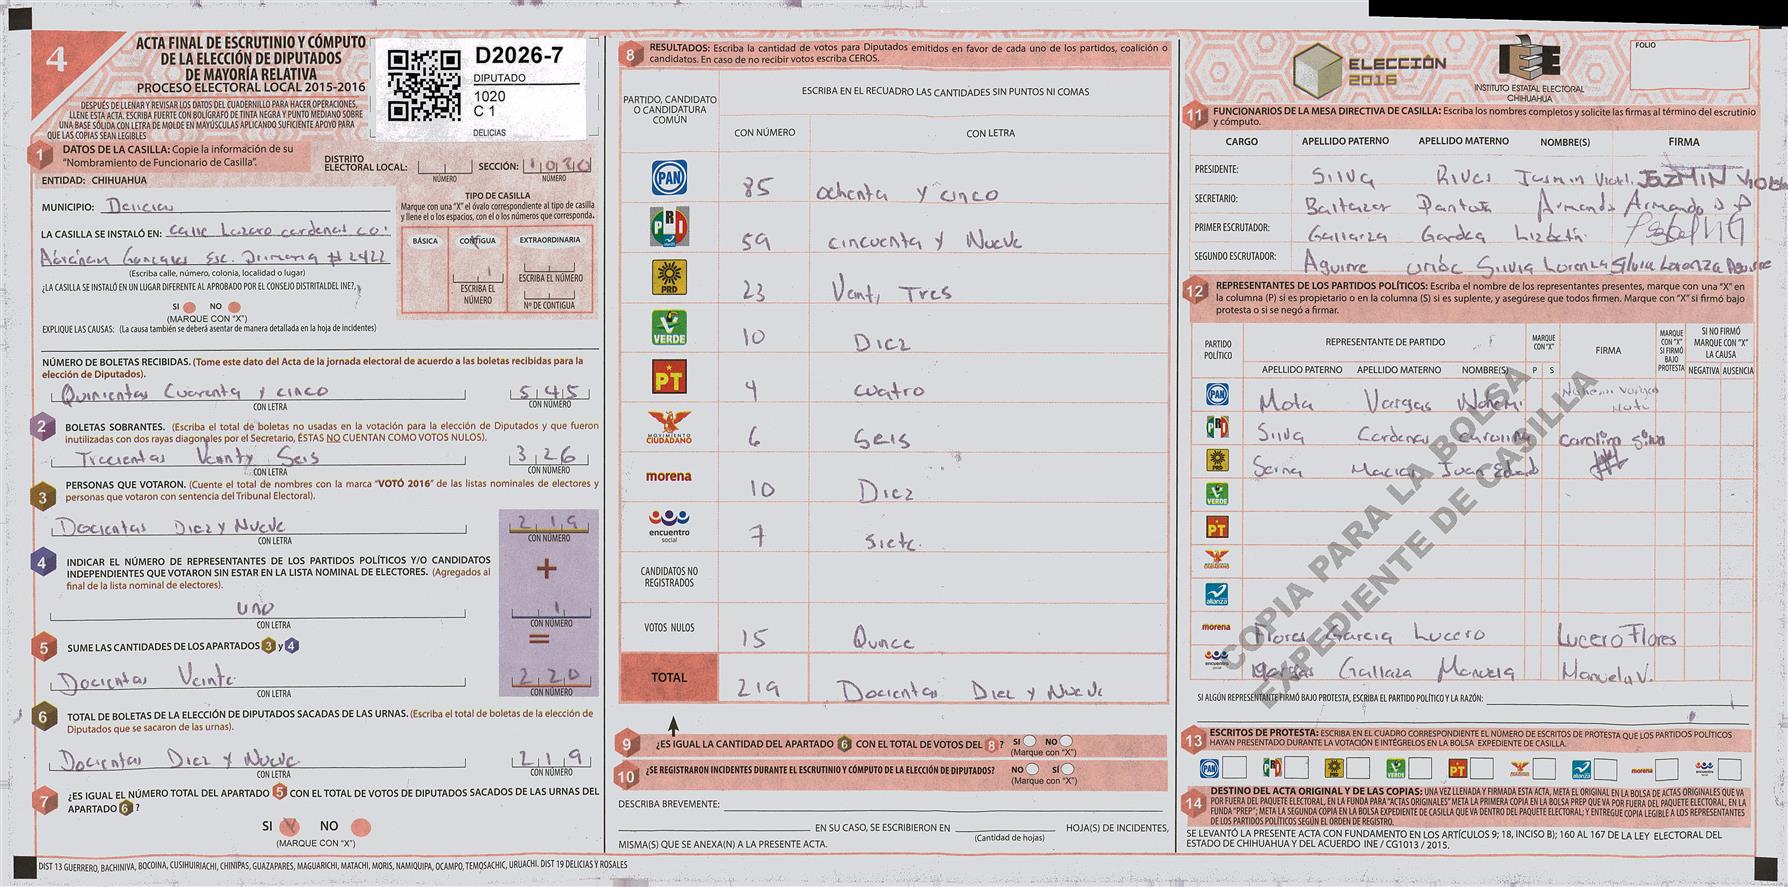 4
ACTA FINAL DE ESCRUTINIO Y CÓMPUTO
DE LA ELECCIÓN DE DIPUTADOS
DE MAYORÍA RELATIVA
PROCESO ELECTORAL LOCAL 2015-2016
DESPUÉS DE LLENAR Y REVISAR LOS DATOS DEL CUADERNILLO PARA HACER OPERACIONES,
LLENE ESTA ACTA. ESCRIBA FUERTE CON BOLÍGRAFO DE TINTA NEGRA Y PUNTO MEDIANO SOBRE
UNA BASE SÓLIDA CON LETRA DE MOLDE EN MAYÚSCULAS APLICANDO SUFICIENTE APOYO PARA
QUE LAS COPIAS SEAN LEGIBLES
D2026-7
DIPUTADO
1020
C 1
DELICIAS
1 DATOS DE LA CASILLA: Copie la información de su
"Nombramiento de Funcionario de Casilla".
DISTRITO
ELECTORAL LOCAL:
NÚMERO
SECCIÓN: 1020
NÚMERO
ENTIDAD: CHIHUAHUA
MUNICIPIO: Delicias
LA CASILLA SE INSTALÓ EN: calle Lazaro cardenas col.
Gonzales Esc. Primaria # 2422
(Escriba calle, número, colonia, localidad o lugar)
¿LA CASILLA SE INSTALÓ EN UN LUGAR DIFERENTE AL APROBADO POR EL CONSEJO DISTRITAL DEL INE?
SI NO
(MARQUE CON "X")
EXPLIQUE LAS CAUSAS: (La causa también se deberá asentar de manera detallada en la hoja de incidentes)
TIPO DE CASILLA
Marque con una "X" el óvalo correspondiente al tipo de casilla
y llene el o los espacios, con el o los números que corresponda.
BÁSICA CONTIGUA EXTRAORDINARIA
1
ESCRIBA EL NÚMERO
ESCRIBA EL NÚMERO
Nº DE CONTIGUA
NÚMERO DE BOLETAS RECIBIDAS. (Tome este dato del Acta de la jornada electoral de acuerdo a las boletas recibidas para la
elección de Diputados).
Quinientas Cuarenta y cinco 545
CON LETRA CON NÚMERO
2 BOLETAS SOBRANTES. (Escriba el total de boletas no usadas en la votación para la elección de Diputados y que fueron
inutilizadas con dos rayas diagonales por el Secretario, ÉSTAS NO CUENTAN COMO VOTOS NULOS).
Trecientas Veinty Seis 326
CON LETRA CON NÚMERO
3 PERSONAS QUE VOTARON. (Cuente el total de nombres con la marca "VOTÓ 2016" de las listas nominales de electores y
personas que votaron con sentencia del Tribunal Electoral).
Docientas Diez y Nueve 219
CON LETRA CON NÚMERO
4 INDICAR EL NÚMERO DE REPRESENTANTES DE LOS PARTIDOS POLÍTICOS Y/O CANDIDATOS
INDEPENDIENTES QUE VOTARON SIN ESTAR EN LA LISTA NOMINAL DE ELECTORES. (Agregados al
final de la lista nominal de electores).
+
uno 1
CON LETRA CON NÚMERO
=
5 SUME LAS CANTIDADES DE LOS APARTADOS 3 y 4
Docientas Veinte 220
CON LETRA CON NÚMERO
6 TOTAL DE BOLETAS DE LA ELECCIÓN DE DIPUTADOS SACADAS DE LAS URNAS. (Escriba el total de boletas de la elección de
Diputados que se sacaron de las urnas).
Docientas Diez y Nueve 219
CON LETRA CON NÚMERO
7 ¿ES IGUAL EL NÚMERO TOTAL DEL APARTADO 5 CON EL TOTAL DE VOTOS DE DIPUTADOS SACADOS DE LAS URNAS DEL
APARTADO 6?
SI NO
(MARQUE CON "X")
DIST 13 GUERRERO, BACHINIVA, BOCOINA, CUSIHUIRIACHI, CHINIPAS, GUAZAPARES, MAGUARICHI, MATACHI, MORIS, NAMIQUIPA, OCAMPO, TEMOSACHIC, URUACHI. DIST 19 DELICIAS Y ROSALES
8 RESULTADOS: Escriba la cantidad de votos para Diputados emitidos en favor de cada uno de los partidos, coalición o
candidatos. En caso de no recibir votos escriba CEROS.
PARTIDO, CANDIDATO
O CANDIDATURA
COMÚN
ESCRIBA EN EL RECUADRO LAS CANTIDADES SIN PUNTOS NI COMAS
CON NÚMERO CON LETRA
PAN 85 ochenta y cinco
PRI 59 cincuenta y Nueve
PRD 23 Veinti Tres
VERDE 10 Diez
PT 4 cuatro
MOVIMIENTO CIUDADANO 6 Seis
morena 10 Diez
encuentro social 7 Siete
CANDIDATOS NO
REGISTRADOS
VOTOS NULOS 15 Quince
TOTAL 219 Docientas Diez y Nueve
9 ¿ES IGUAL LA CANTIDAD DEL APARTADO 6 CON EL TOTAL DE VOTOS DEL 8? SI NO
(Marque con "X")
10 ¿SE REGISTRARON INCIDENTES DURANTE EL ESCRUTINIO Y CÓMPUTO DE LA ELECCIÓN DE DIPUTADOS? NO SÍ
(Marque con "X")
DESCRIBA BREVEMENTE:
EN SU CASO, SE ESCRIBIERON EN HOJA(S) DE INCIDENTES,
(Cantidad de hojas)
MISMA(S) QUE SE ANEXA(N) A LA PRESENTE ACTA.
ELECCIÓN
2016
IEE
INSTITUTO ESTATAL ELECTORAL
CHIHUAHUA
FOLIO
11 FUNCIONARIOS DE LA MESA DIRECTIVA DE CASILLA: Escriba los nombres completos y solicite las firmas al término del escrutinio
y cómputo.
CARGO APELLIDO PATERNO APELLIDO MATERNO NOMBRE(S) FIRMA
PRESIDENTE: Silva Rivas Jasmin Viol. JAZMIN
SECRETARIO: Baltazar Pantoja Armando Armando B P
PRIMER ESCRUTADOR: Gallarza Gardea Lizbeth
SEGUNDO ESCRUTADOR: Aguirre Silvia Lorenza Silvia Lorenza Aguirre
12 REPRESENTANTES DE LOS PARTIDOS POLÍTICOS: Escriba el nombre de los representantes presentes, marque con una "X" en
la columna (P) si es propietario o en la columna (S) si es suplente, y asegúrese que todos firmen. Marque con "X" si firmó bajo
protesta o si se negó a firmar.
PARTIDO
POLÍTICO
REPRESENTANTE DE PARTIDO
MARQUE CON "X"
FIRMA
MARQUE CON "X" SI FIRMÓ BAJO PROTESTA
SI NO FIRMÓ
MARQUE CON "X"
LA CAUSA
APELLIDO PATERNO APELLIDO MATERNO NOMBRE(S) P S NEGATIVA AUSENCIA
PAN Mota Vargas Nohemi Nohemi Vargas Mota
PRI Silva Cardenas Carolina Carolina Silva
PRD Serna Macias Juan
VERDE
PT
MOVIMIENTO CIUDADANO
alianza
morena Flores Garcia Lucero Lucero Flores
encuentro social Vargas Gallaza Manuela Manuela V.
COPIA PARA LA BOLSA
EXPEDIENTE DE CASILLA
SI ALGÚN REPRESENTANTE FIRMÓ BAJO PROTESTA, ESCRIBA EL PARTIDO POLÍTICO Y LA RAZÓN:
13 ESCRITOS DE PROTESTA: ESCRIBA EN EL CUADRO CORRESPONDIENTE EL NÚMERO DE ESCRITOS DE PROTESTA QUE LOS PARTIDOS POLÍTICOS
HAYAN PRESENTADO DURANTE LA VOTACIÓN E INTÉGRELOS EN LA BOLSA EXPEDIENTE DE CASILLA.
PAN PRI PRD VERDE PT alianza morena encuentro social
14 DESTINO DEL ACTA ORIGINAL Y DE LAS COPIAS: UNA VEZ LLENADA Y FIRMADA ESTA ACTA, META EL ORIGINAL EN LA BOLSA DE ACTAS ORIGINALES QUE VA
POR FUERA DEL PAQUETE ELECTORAL, EN LA FUNDA PARA "ACTAS ORIGINALES" META LA PRIMERA COPIA EN LA BOLSA PREP QUE VA POR FUERA DEL PAQUETE ELECTORAL, EN LA
FUNDA "PREP"; META LA SEGUNDA COPIA EN LA BOLSA EXPEDIENTE DE CASILLA QUE VA DENTRO DEL PAQUETE ELECTORAL; Y ENTREGUE COPIA LEGIBLE A LOS REPRESENTANTES
DE LOS PARTIDOS POLÍTICOS SEGÚN EL ORDEN DE REGISTRO.
SE LEVANTÓ LA PRESENTE ACTA CON FUNDAMENTO EN LOS ARTÍCULOS 9; 18, INCISO B); 160 AL 167 DE LA LEY ELECTORAL DEL
ESTADO DE CHIHUAHUA Y DEL ACUERDO INE / CG1013 / 2015.